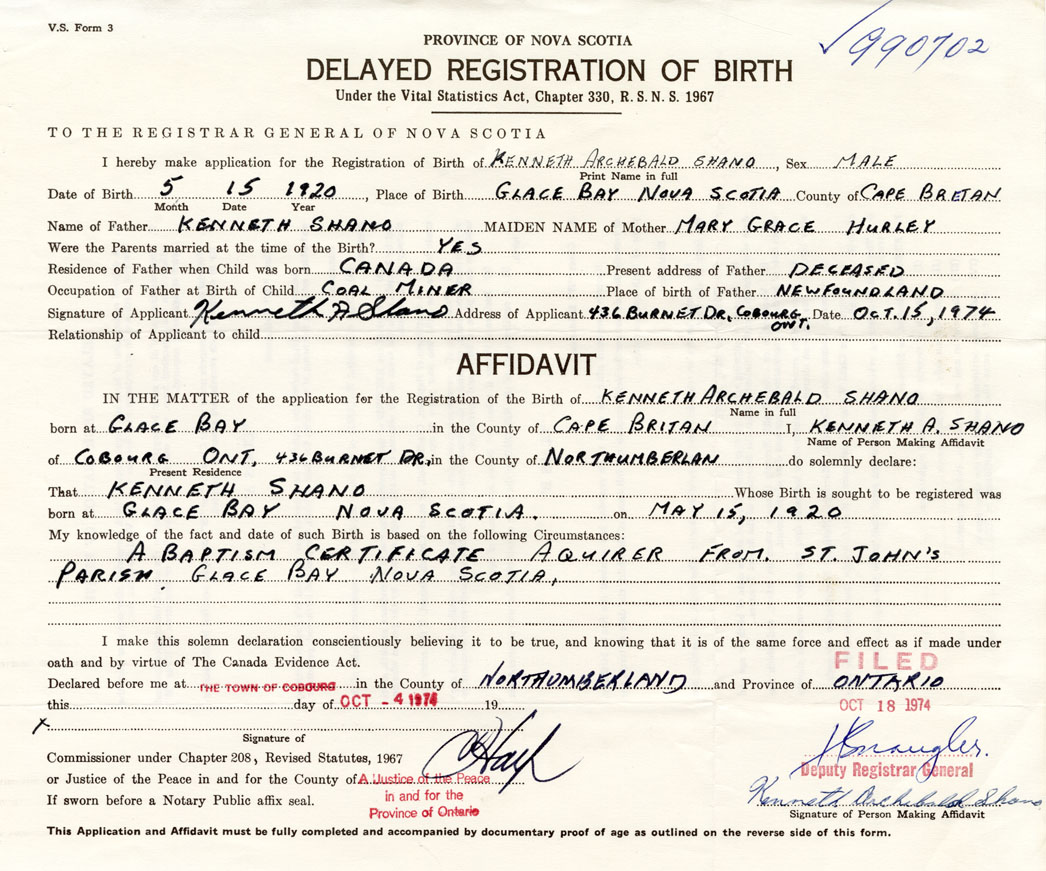 V.S. Form 3
✓990702
PROVINCE OF NOVA SCOTIA
DELAYED REGISTRATION OF BIRTH
Under the Vital Statistics Act, Chapter 330, R. S. N. S. 1967
TO THE REGISTRAR GENERAL OF NOVA SCOTIA
I hereby make application for the Registration of Birth of KENNETH ARCHEBALD SHANO, Sex MALE
Print Name in full
Date of Birth 5 15 1920, Place of Birth GLACE BAY NOVA SCOTIA County of CAPE BRETAN
Month Date Year
Name of Father KENNETH SHANO MAIDEN NAME of Mother MARY GRACE HURLEY
Were the Parents married at the time of the Birth? YES
Residence of Father when Child was born CANADA Present address of Father DECEASED
Occupation of Father at Birth of Child COAL MINER Place of birth of Father NEWFOUNDLAND
Signature of Applicant Kenneth A Shano Address of Applicant 436 BURNET DR, COBOURG ONT. Date OCT. 15, 1974
Relationship of Applicant to child
AFFIDAVIT
IN THE MATTER of the application for the Registration of the Birth of KENNETH ARCHEBALD SHANO
Name in full
born at GLACE BAY in the County of CAPE BRITAN I, KENNETH A. SHANO
Name of Person Making Affidavit
of COBOURG ONT, 436 BURNET DR, in the County of NORTHUMBERLAN do solemnly declare:
Present Residence
That KENNETH SHANO Whose Birth is sought to be registered was
born at GLACE BAY NOVA SCOTIA. on MAY 15, 1920
My knowledge of the fact and date of such Birth is based on the following Circumstances:
A BAPTISM CERTIFICATE AQUIRER FROM. ST. JOHN'S
PARISH. GLACE BAY NOVA SCOTIA,
I make this solemn declaration conscientiously believing it to be true, and knowing that it is of the same force and effect as if made under
oath and by virtue of The Canada Evidence Act.
FILED
Declared before me at THE TOWN OF COBOURG in the County of NORTHUMBERLAND and Province of ONTARIO
this day of OCT - 4 1974 19
OCT 18 1974
x
Signature of
Commissioner under Chapter 208, Revised Statutes, 1967
or Justice of the Peace in and for the County of A Justice of the Peace
Deputy Registrar General
in and for the
If sworn before a Notary Public affix seal.
Kenneth Archebald Shano
Province of Ontario
Signature of Person Making Affidavit
This Application and Affidavit must be fully completed and accompanied by documentary proof of age as outlined on the reverse side of this form.